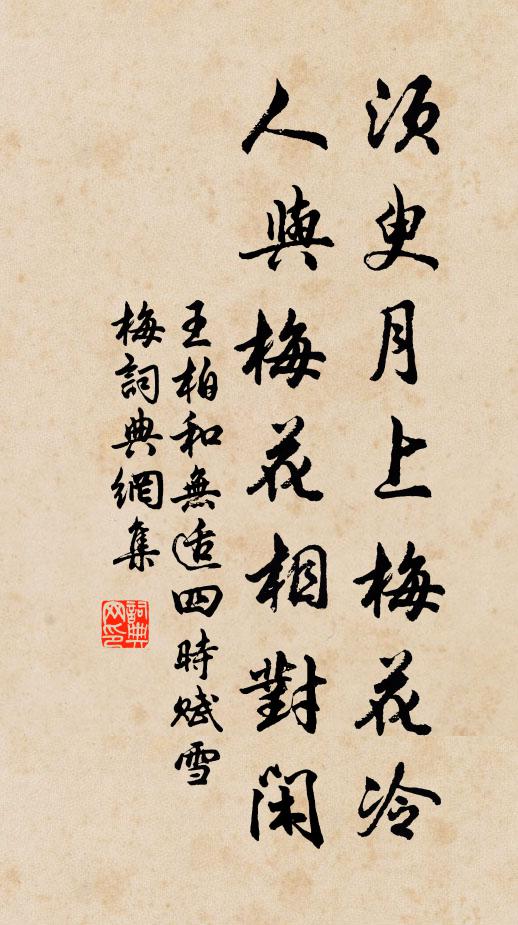 須臾月上梅花冷
人與梅花相對閑
王柏和無適四時賦雪
梅詞典網集
詞典網印